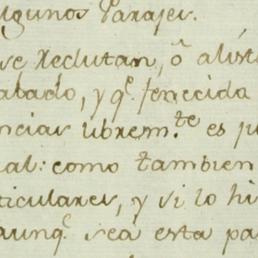 algunos Parajes.
se reclutan, ô alist
atado, y q.e fenecida
enciar librem.te es p
al: como tambien
ticulares, y si lo hi
aunq.e sea esta pa